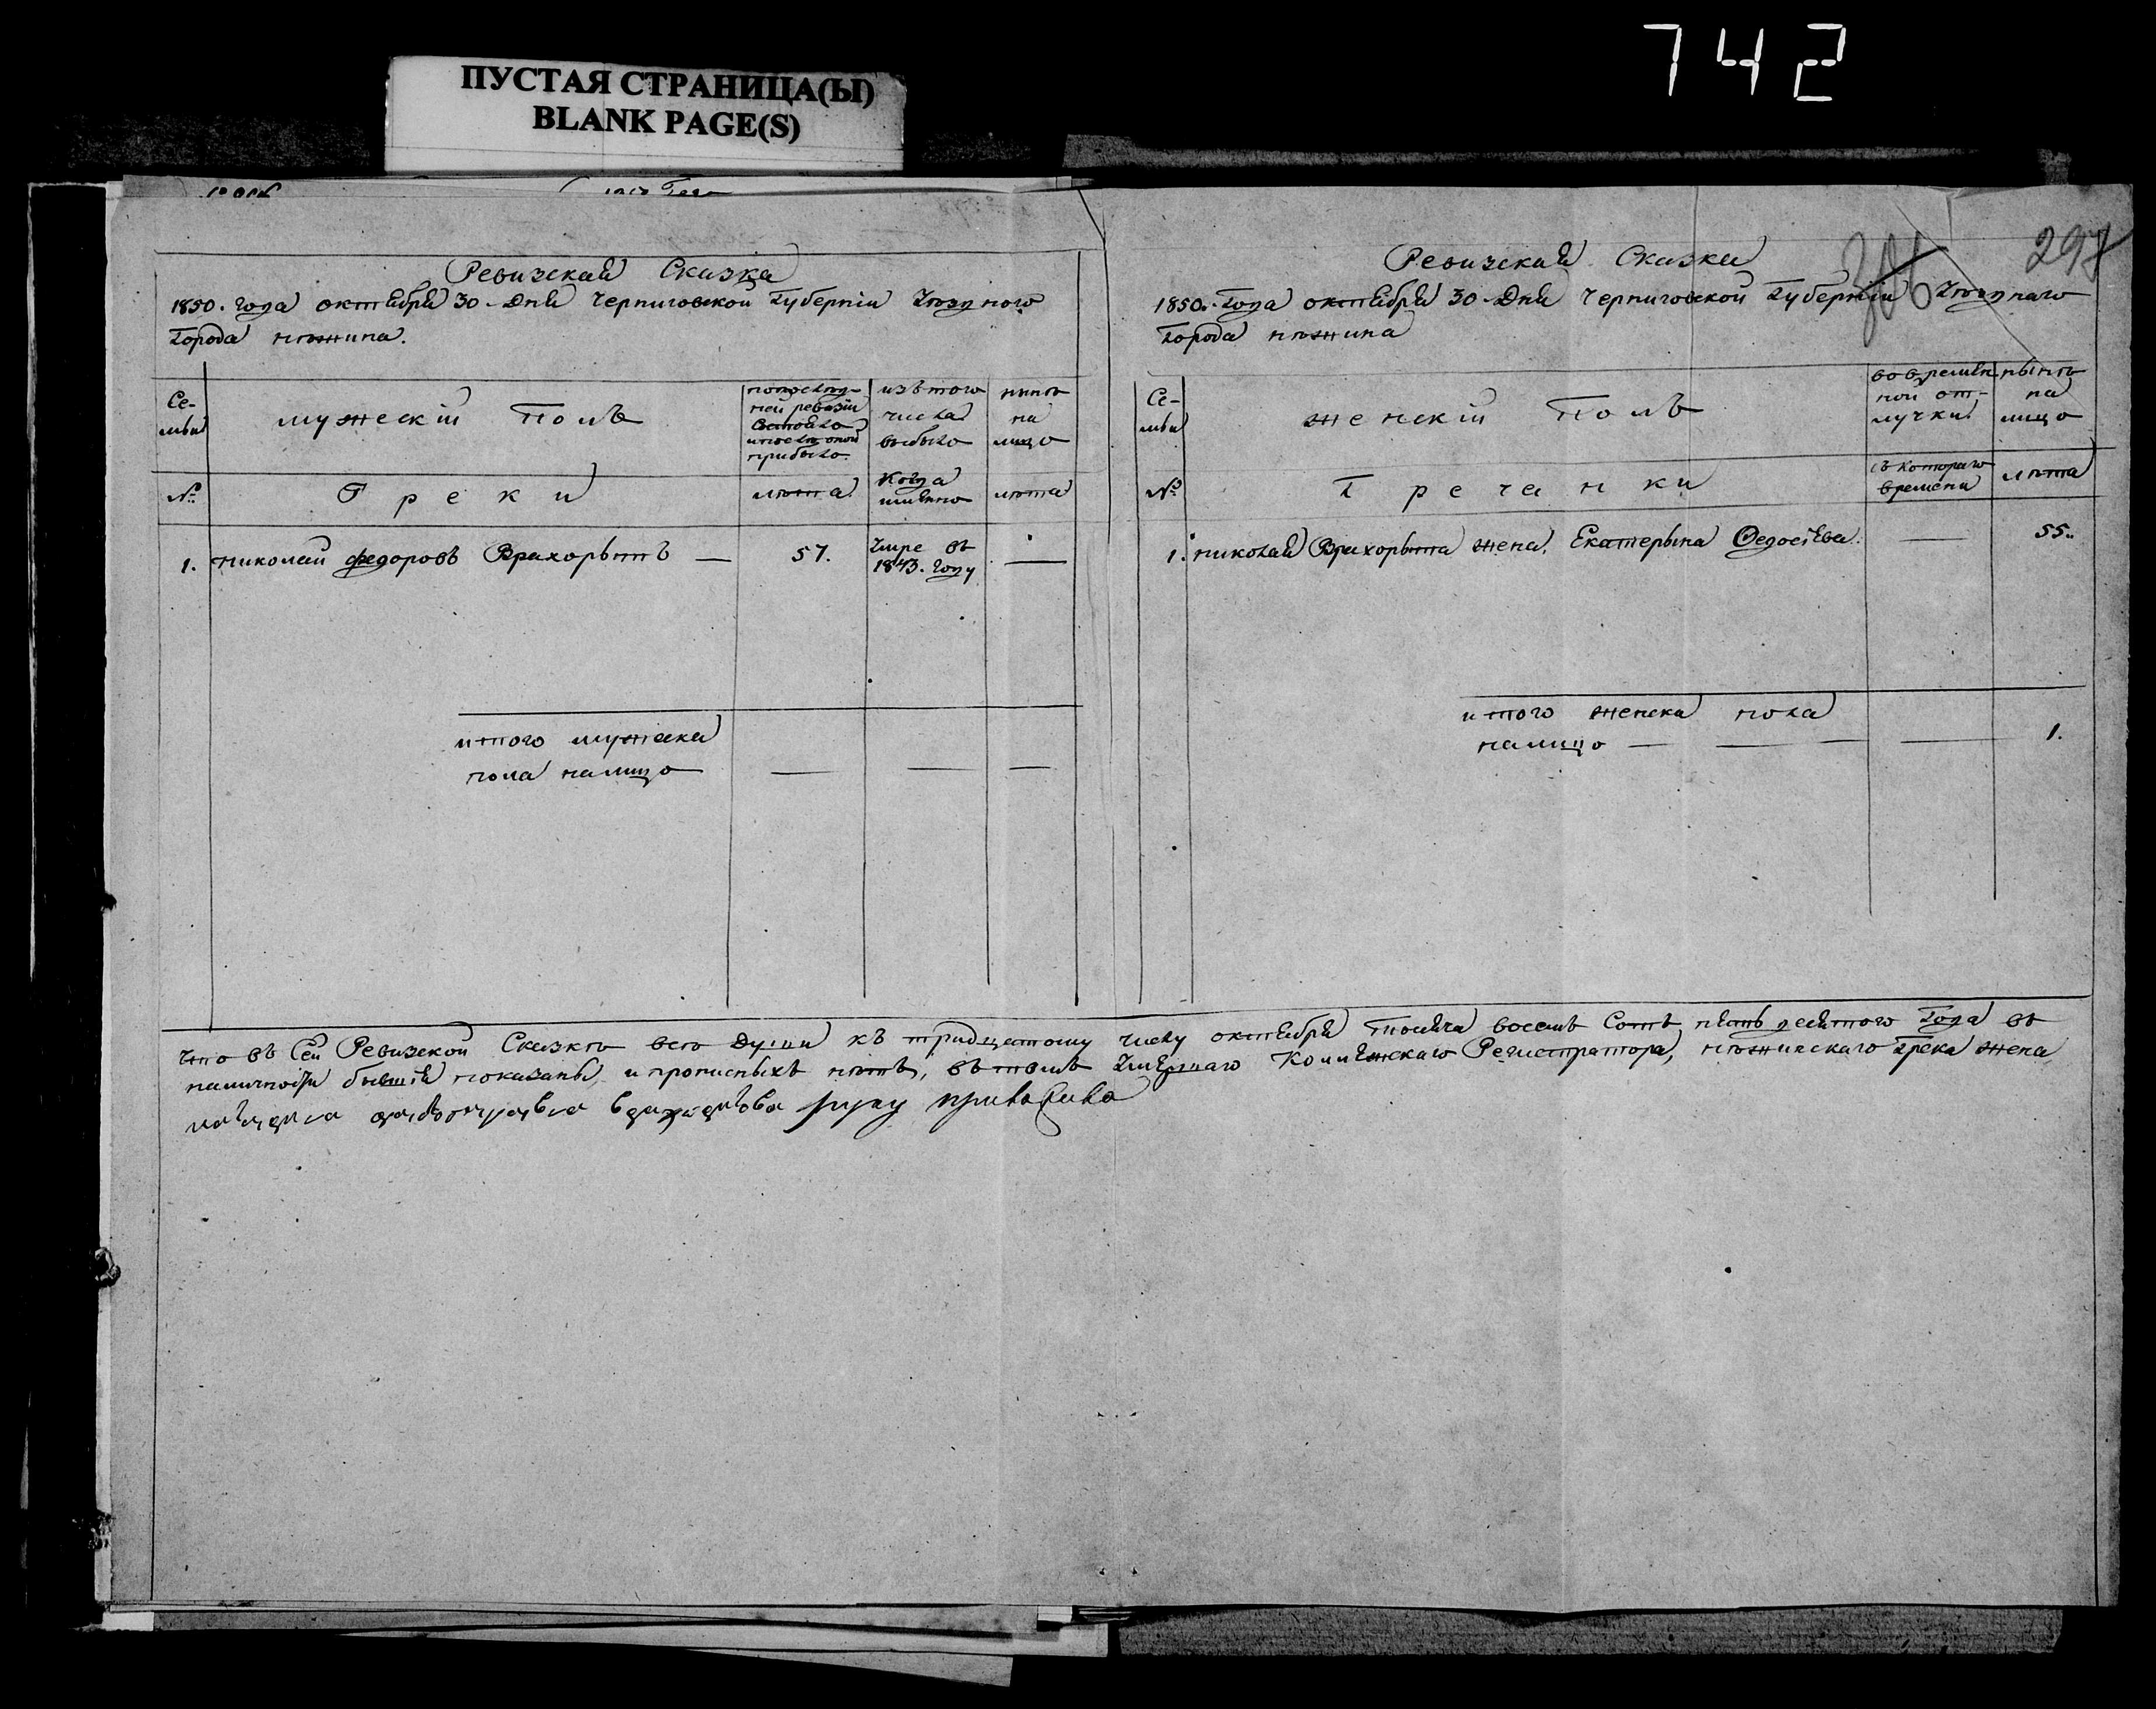 742
ПУСТАЯ СТРАНИЦА(Ы)
BLANK PAGE(S)
297
306
Ревизская Сказка
1850. года октября 30 дня Черниговской Губерніи Уездного
Города нѣжина.
Се-
мьи
мужескій Полъ
по послед-
ней ревизіи
Состояло
и после оной
прибыло.
изъ того
числа
выбыло
нынѣ
на
лицо
№
Греки
лѣта
Когда
имянно
лѣта
1. николай федоровъ Врихорытъ — 57. Умре въ
1843. году —
итого мужска
пола налицо — — —
Ревизская Сказка
1850. Года октября 30 дня Черниговской Губерніи Уезднаго
Города нѣжина
Се-
мьи
женскій Полъ
во времен-
ной от-
лучки
нынѣ
на
лицо
№
Гречанки
съ котораго
времени
лѣта
1. николая Врихорыта жена. Екатерына Федосіева. — 55.
итого женска пола
налицо — — — 1.
Что въ Сей Ревизской Сказкѣ все души къ тридцатому числу октября тысяча восемь Сотъ пять десятого Года въ
наличности бывшія показаны, и прописныхъ нѣтъ, въ томъ Умершаго Колежскаго Регистратора, нѣжинскаго Грека жена
руку приложила